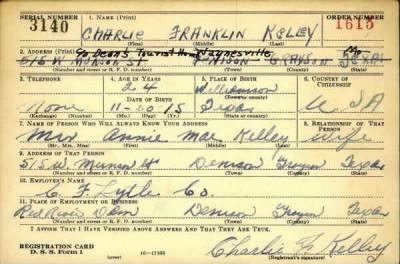 SERIAL NUMBER 1. NAME (Print) ORDER NUMBER
3140 CHARLIE FRANKLIN KELLEY 1615
(First) (Middle) (Last)
2. ADDRESS (Print) % Dean's Tourist Home Waynesville, Mo.
515 W MUNSON ST. DENISON GRAYSON TEXAS
(Number and street or R. F. D. number) (Town) (County) (State)
3. TELEPHONE 4. AGE IN YEARS 5. PLACE OF BIRTH 6. COUNTRY OF CITIZENSHIP
24 Williamson
DATE OF BIRTH (Town or county)
None 11-30-15 Texas U S A
(Exchange) (No.) (Mo.) (Day) (Yr.) (State or country)
7. NAME OF PERSON WHO WILL ALWAYS KNOW YOUR ADDRESS 8. RELATIONSHIP OF THAT PERSON
Mrs Annie Mae Kelley Wife
(Mr., Mrs., Miss) (First) (Middle) (Last)
9. ADDRESS OF THAT PERSON
515 W. Munson St Denison Grayson Texas
(Number and street or R. F. D. number) (Town) (County) (State)
10. EMPLOYER'S NAME
C F Lytle Co.
11. PLACE OF EMPLOYMENT OR BUSINESS
Red River Dam Denison Grayson Texas
(Number and street or R. F. D. number) (Town) (County) (State)
I AFFIRM THAT I HAVE VERIFIED ABOVE ANSWERS AND THAT THEY ARE TRUE.
REGISTRATION CARD
D. S. S. Form 1 (over) 16—17105 Charlie F Kelley
(Registrant's signature)